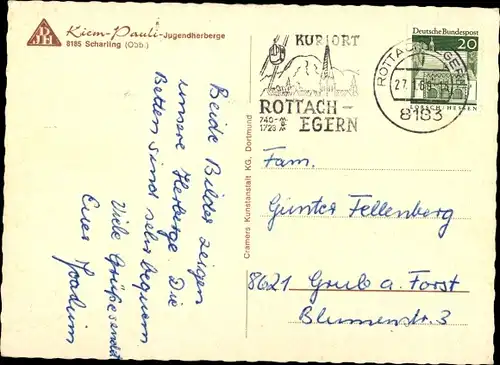 Kiem-Pauli-Jugendherberge
8185 Scharling (Obb.)
Beide Bilder zeigen
unsere Herberge. Die
Betten sind sehr bequem
Viele Grüße sendet
Euer Joachim
Cramers Kunstanstalt KG, Dortmund
KURORT
ROTTACH-
EGERN
740-
1723
ROTTACH-EGERN
27.
8183
Deutsche Bundespost
20
LORSCH/HESSEN
Fam.
Günter Fellenberg
8621 Grub a. Forst
Blumenstr. 3